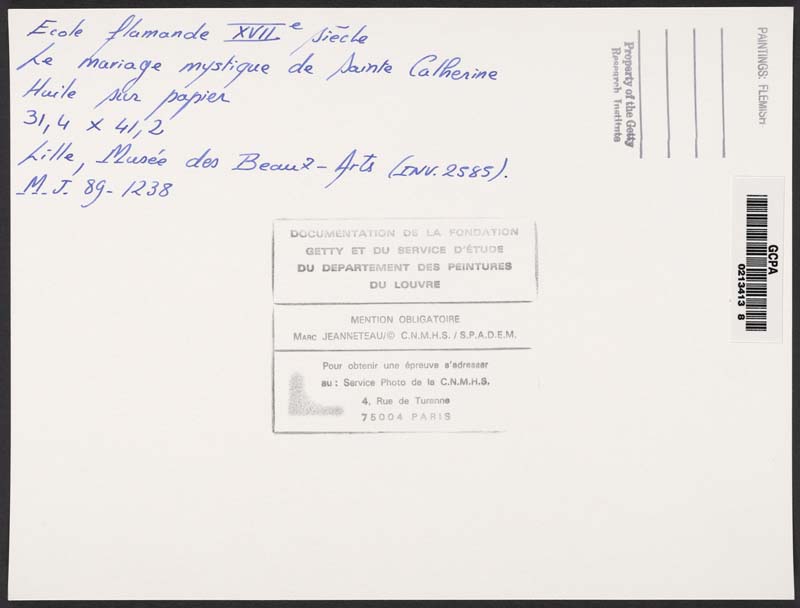 Ecole flamande XVIIe siècle
Le mariage mystique de Sainte Catherine
Huile sur papier
31,4 x 41,2
Lille, Musée des Beaux-Arts (INV. 2585).
M.J. 89-1238
Property of the Getty
Research Institute
PAINTINGS: FLEMISH
GCPA
0213413 8
DOCUMENTATION DE LA FONDATION
GETTY ET DU SERVICE D'ÉTUDE
DU DEPARTEMENT DES PEINTURES
DU LOUVRE
MENTION OBLIGATOIRE
MARC JEANNETEAU/© C.N.M.H.S. / S.P.A.D.E.M.
Pour obtenir une épreuve s'adresser
au : Service Photo de la C.N.M.H.S.
4, Rue de Turenne
75004 PARIS